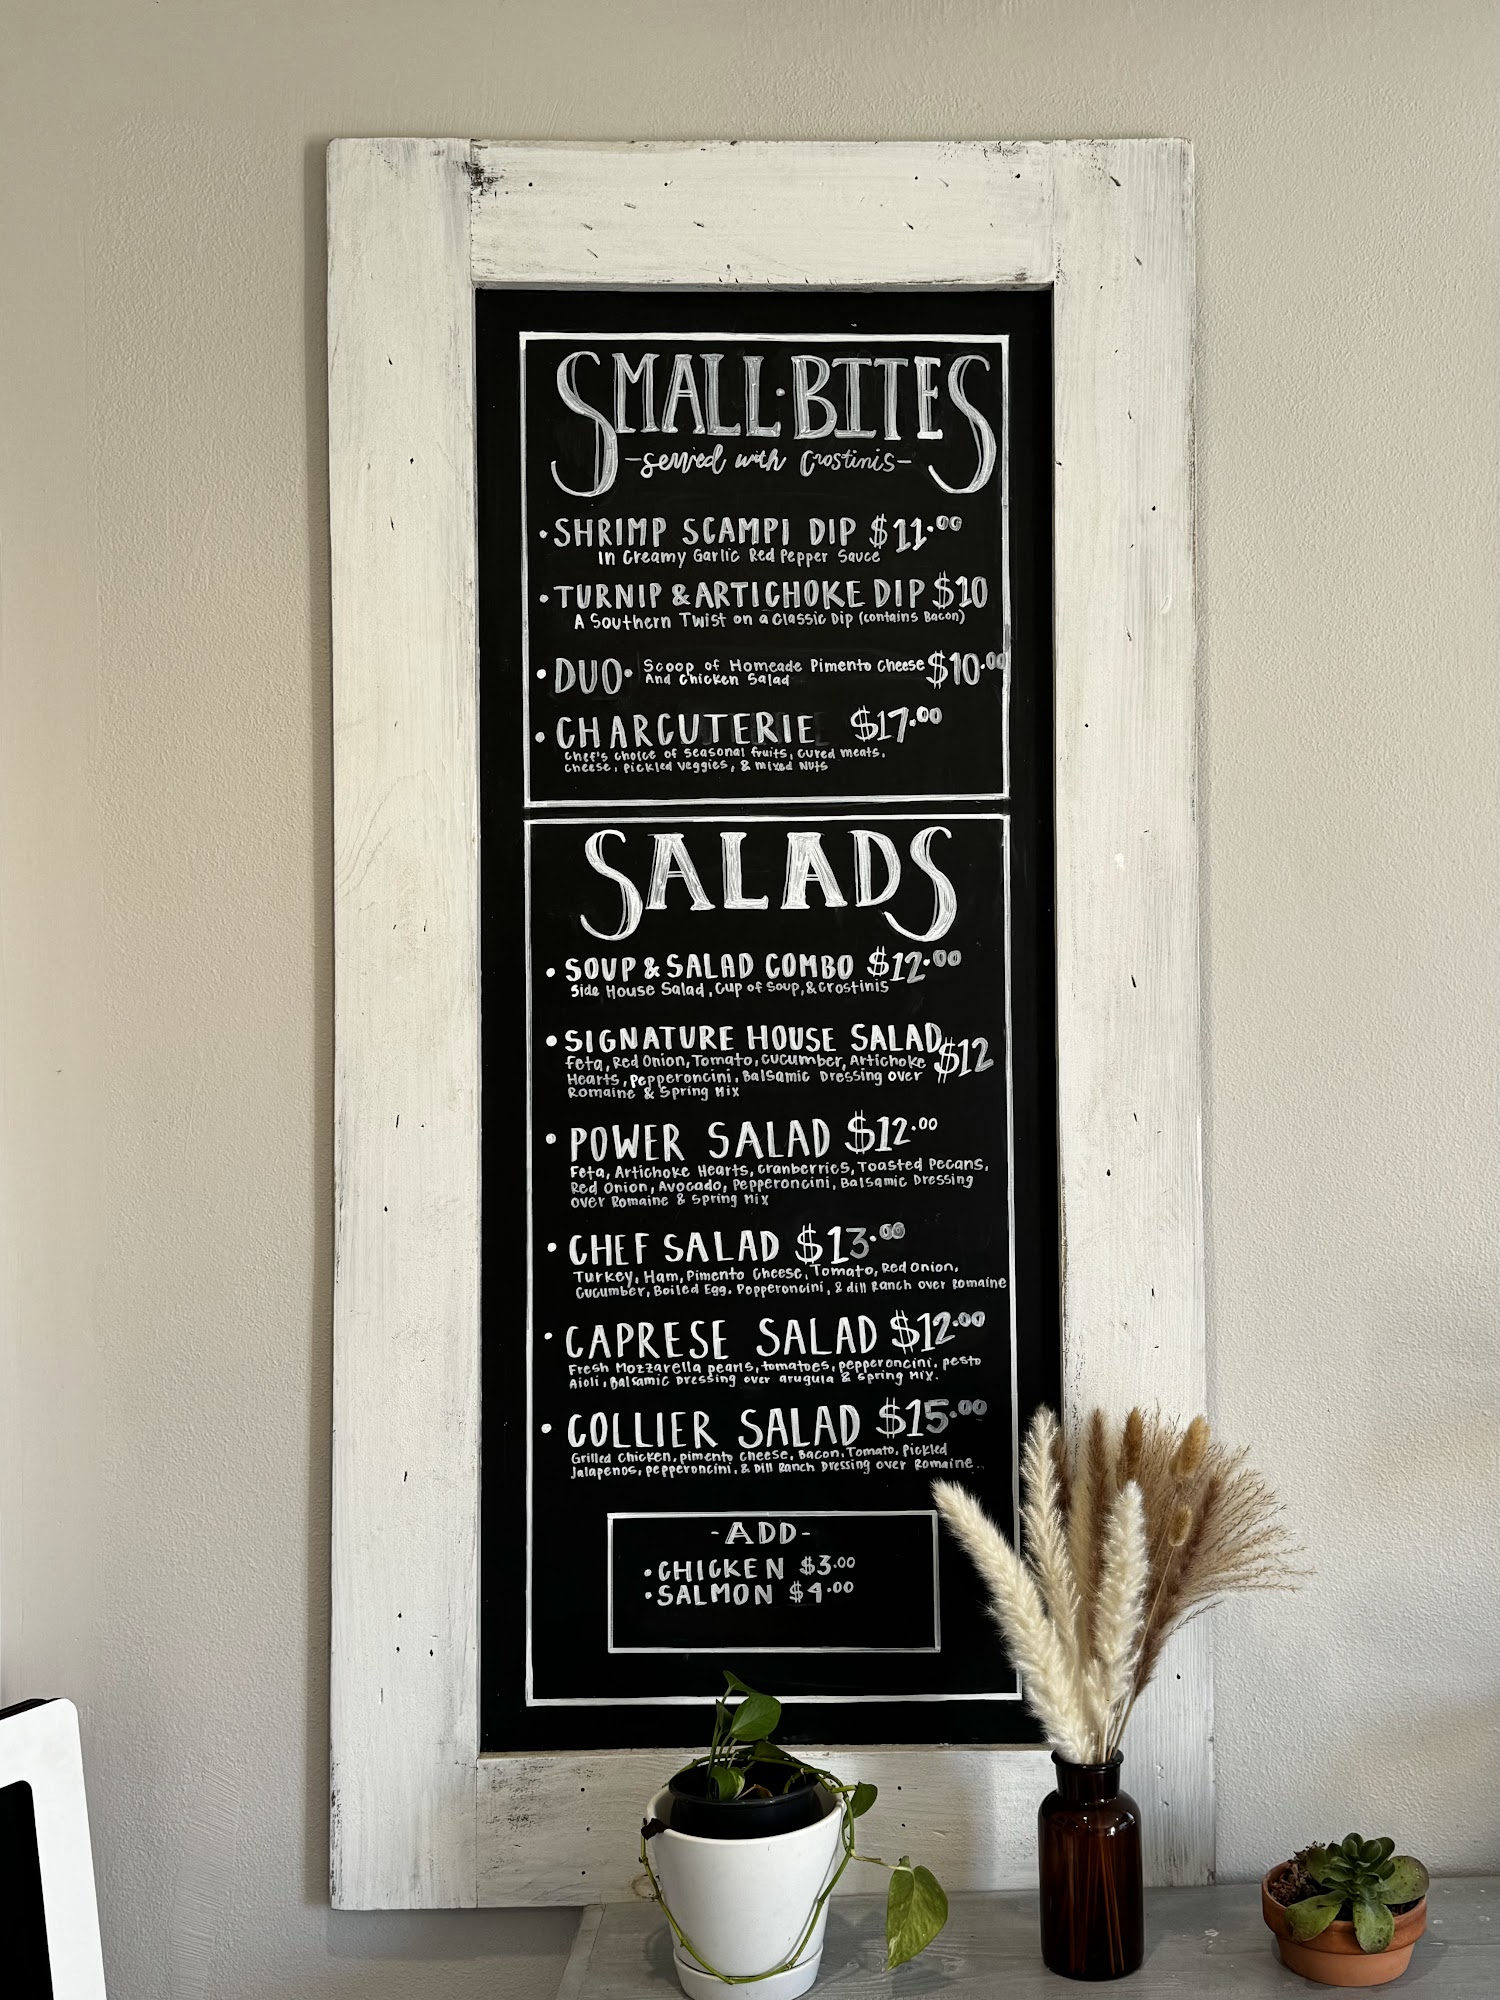 SMALL·BITES
-served with Crostinis-
• SHRIMP SCAMPI DIP $11.00
In Creamy Garlic Red Pepper Sauce
• TURNIP & ARTICHOKE DIP $10
A Southern Twist on a Classic Dip (contains Bacon)
• DUO• Scoop of Homeade Pimento Cheese $10.00
And Chicken Salad
• CHARCUTERIE $17.00
Chef's choice of seasonal fruits, cured meats,
cheese, pickled veggies, & mixed nuts
SALADS
• SOUP & SALAD COMBO $12.00
Side House Salad, Cup of Soup, & Crostinis
• SIGNATURE HOUSE SALAD $12
Feta, Red Onion, Tomato, cucumber, Artichoke
Hearts, Pepperoncini, Balsamic Dressing over
Romaine & Spring Mix
• POWER SALAD $12.00
Feta, Artichoke Hearts, cranberries, Toasted Pecans,
Red Onion, Avocado, Pepperoncini, Balsamic Dressing
over Romaine & Spring Mix
• CHEF SALAD $13.00
Turkey, Ham, Pimento Cheese, Tomato, Red Onion,
Cucumber, Boiled Egg. Popperoncini, & dill Ranch over Romaine
• CAPRESE SALAD $12.00
Fresh Mozzarella pearls, tomatoes, pepperoncini, pesto
Aioli, Balsamic Dressing over arugula & Spring Mix.
• COLLIER SALAD $15.00
Grilled Chicken, pimento cheese, Bacon, Tomato, Pickled
Jalapenos, pepperoncini, & Dill Ranch Dressing over Romaine..
-ADD-
• CHICKEN $3.00
• SALMON $4.00